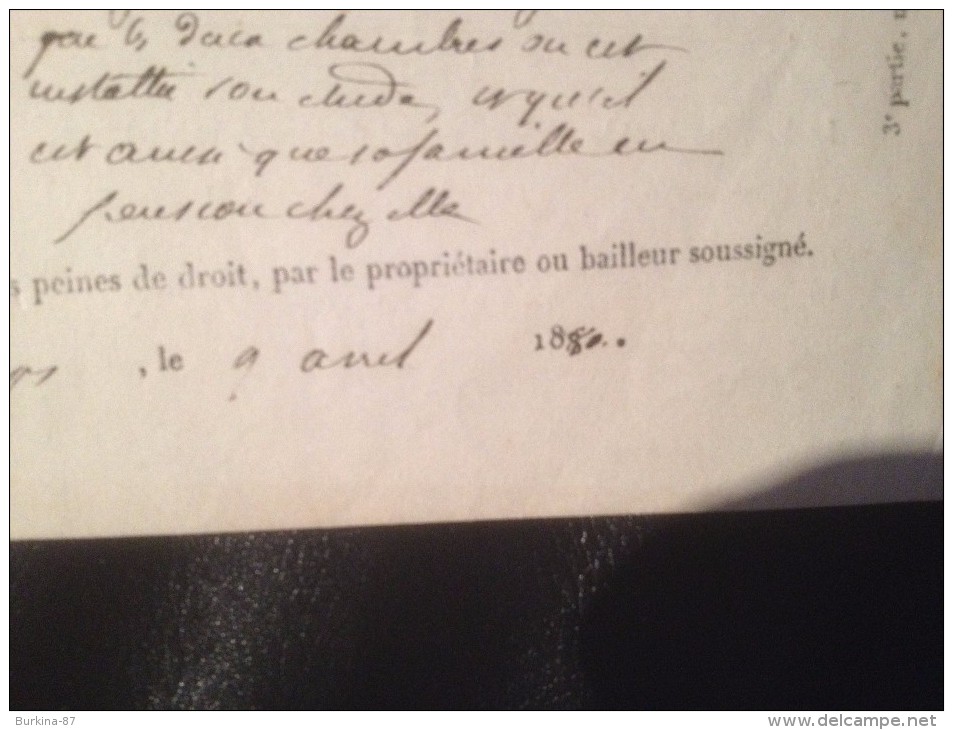 que les deux chambres ou est
installé son et qu'il
est ainsi que sa famille en
pension chez elle
s peines de droit, par le propriétaire ou bailleur soussigné.
, le 9 avril 1880.
3e partie,
Burkina-87
www.delcampe.net